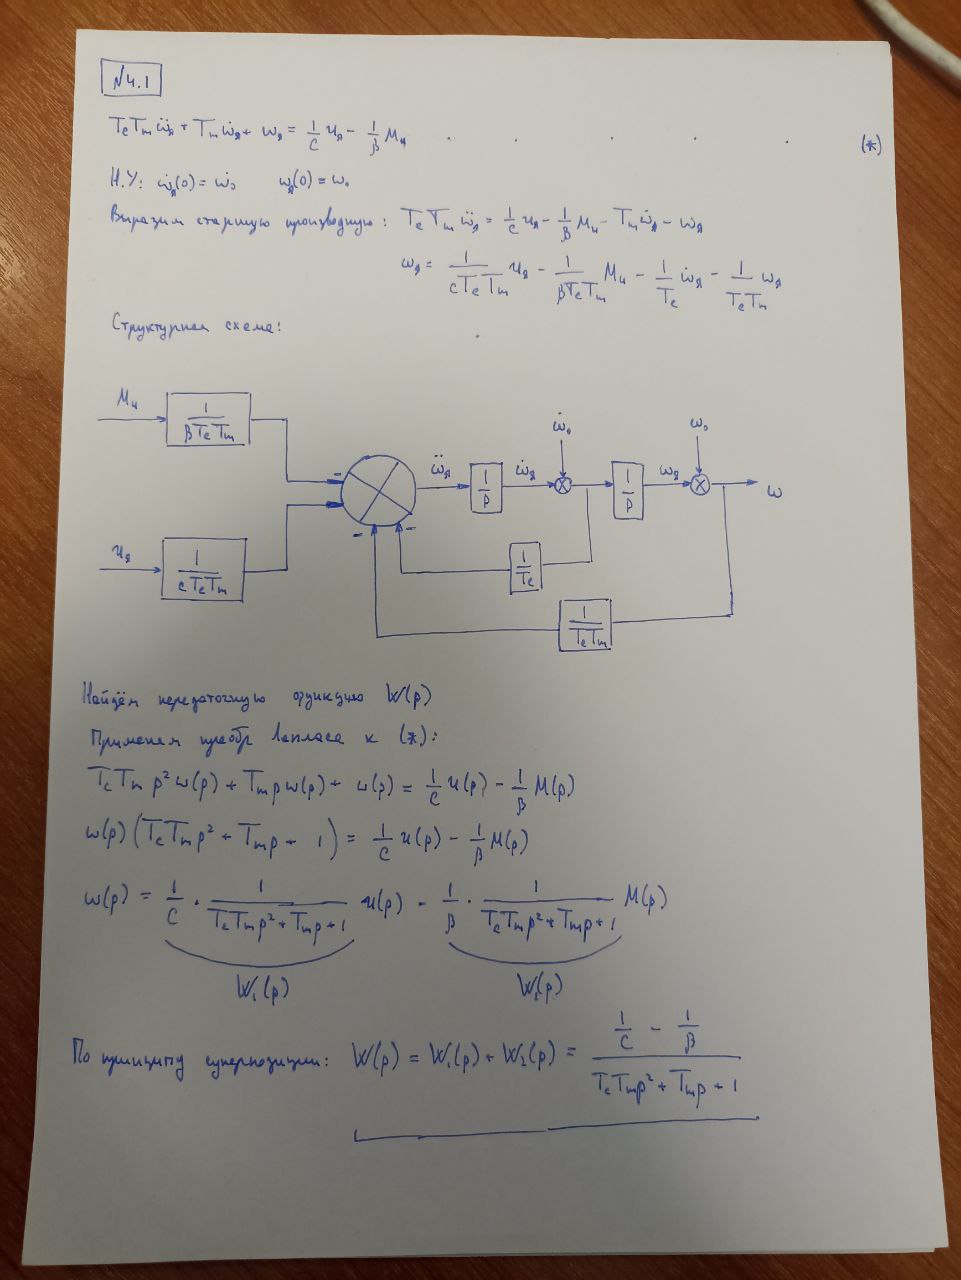 N4.1
TcTmω̈я + Tmω̇я + ωя = 1/C uя - 1/β Mн . . . . . (*)
Н.У: ω̇я(0) = ω̇₀ ωя(0) = ω₀
Выразим старшую производную: TcTmω̈я = 1/C uя - 1/β Mн - Tmω̇я - ωя
ωя = 1/(cTcTm) uя - 1/(βTcTm) Mн - 1/Tc ω̇я - 1/(TcTm) ωя
Структурная схема:
Mн 1/(βTcTm) - ω̈я 1/p ω̇я ω̇₀ 1/p ωя ω₀ ω
uя 1/(cTcTm) - - 1/Tc
1/(TcTm)
Найдём передаточную функцию W(p)
Применем преобр Лапласа к (*):
TcTm p² ω(p) + Tm p ω(p) + ω(p) = 1/C u(p) - 1/β M(p)
ω(p) (TcTm p² + Tm p + 1) = 1/C u(p) - 1/β M(p)
ω(p) = 1/C · 1/(TcTm p² + Tm p + 1) u(p) - 1/β · 1/(TcTm p² + Tm p + 1) M(p)
W₁(p) W₂(p)
По принципу суперпозиции: W(p) = W₁(p) + W₂(p) = (1/C - 1/β)/(TcTm p² + Tm p + 1)